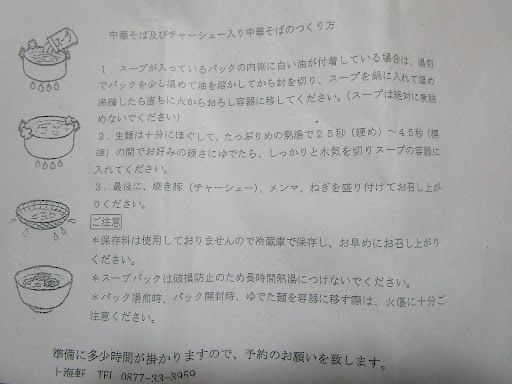 スープ
中華そば及びチャーシュー入り中華そばのつくり方
1．スープが入っているパックの内側に白い油が付着している場合は、湯煎
でパックを少し温めて油を溶かしてから封を切り、スープを鍋に入れて温め
沸騰したら直ちに火からおろし容器に移してください。(スープは絶対に煮詰
めないでください)
2．生麺は十分にほぐして、たっぷりめの熱湯で25秒(硬め)～45秒(標
準)の間でお好みの硬さにゆでたら、しっかりと水気を切りスープの容器に
入れてください。
3．最後に、焼き豚(チャーシュー)、メンマ、ねぎを盛り付けてお召し上が
りください。
ご注意
＊保存料は使用しておりませんので冷蔵庫で保存し、お早めにお召し上がり
ください。
＊スープパックは破損防止のため長時間熱湯につけないでください。
＊パック湯煎時、パック開封時、ゆでた麺を容器に移す際は、火傷に十分ご
注意ください。
準備に多少時間が掛かりますので、予約のお願いを致します。
上海軒 TEL 0877-33-3959